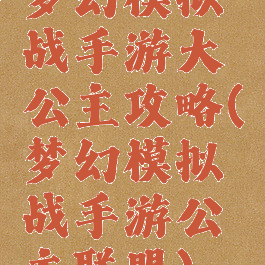 梦幻模拟
战手游大
公主攻略(
梦幻模拟
战手游公
主联盟)